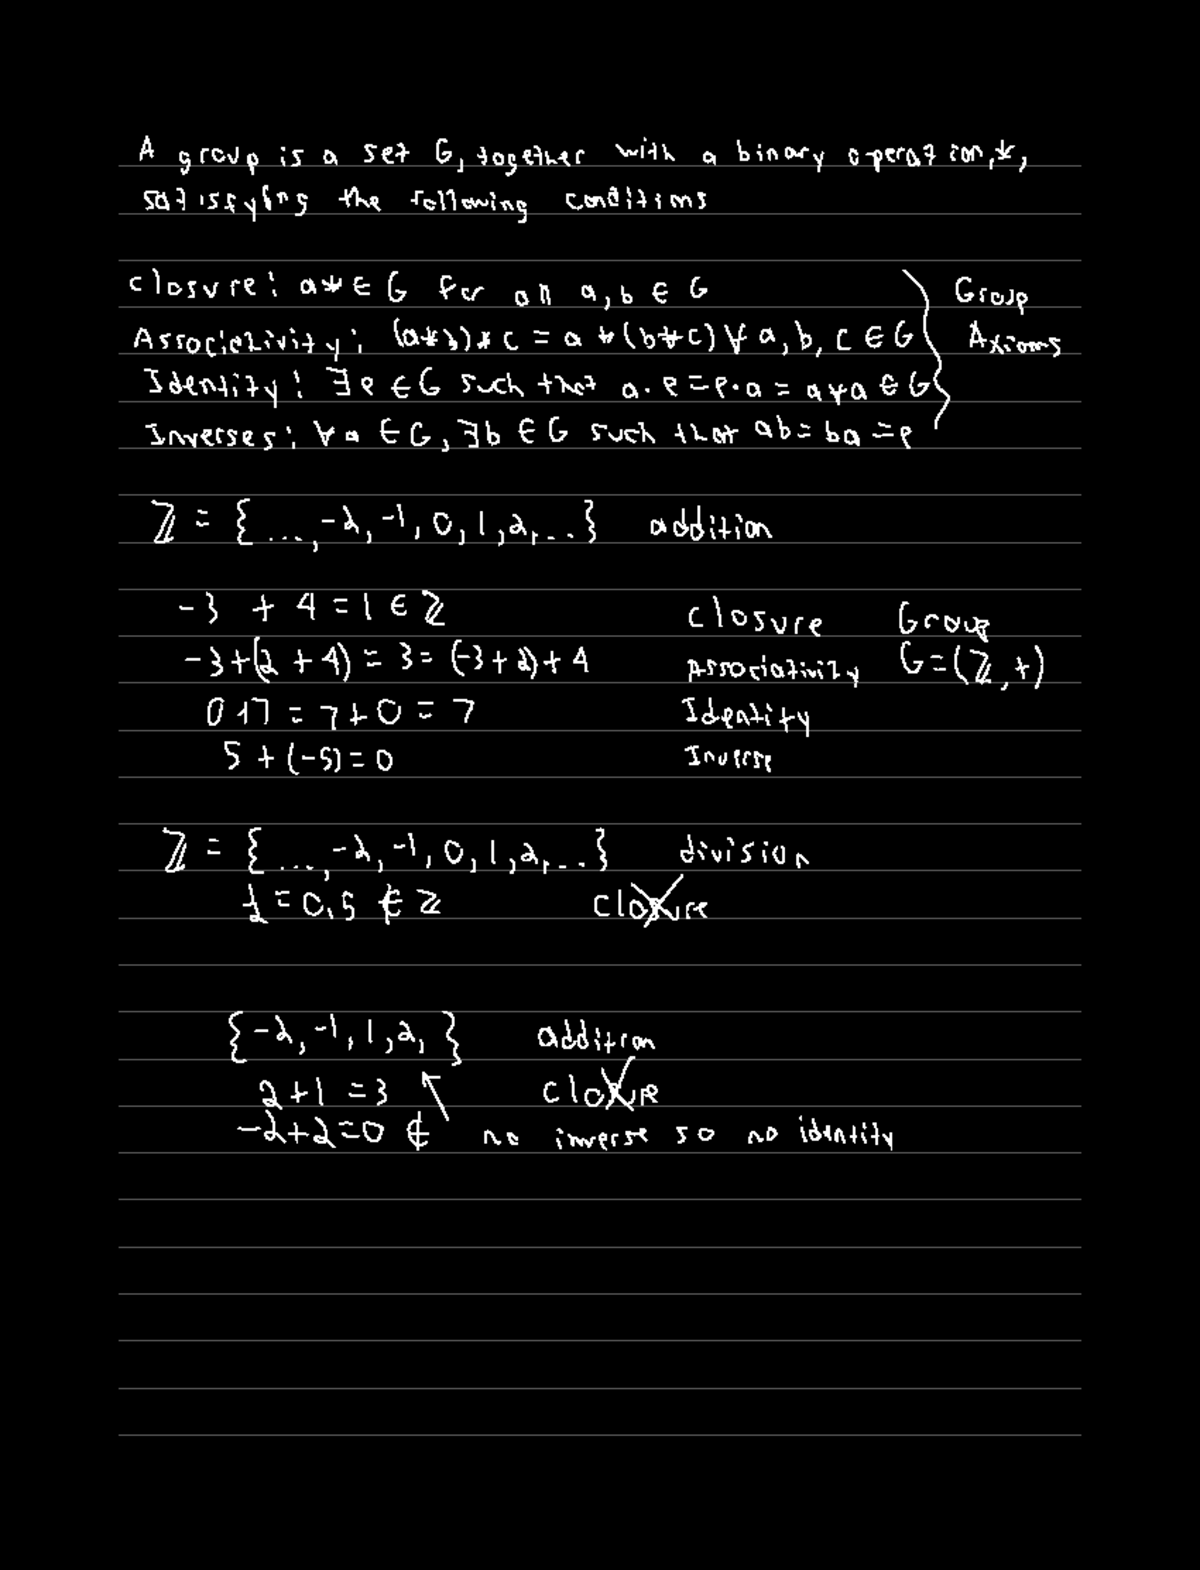 A group is a set G, together with a binary operation, *,
satisfying the following conditions
Closure: a* ∈ G for all a, b ∈ G
Group
Associativity: (a*b)*c = a*(b*c) ∀ a, b, c ∈ G
Axioms
Identity: ∃ e ∈ G such that a·e = e·a = a ∀ a ∈ G
Inverses: ∀ a ∈ G, ∃ b ∈ G such that ab = ba = e
ℤ = {..., -2, -1, 0, 1, 2, ...} addition
-3 + 4 = 1 ∈ ℤ closure Group
-3+(2 + 4) = 3 = (-3+2)+4 Associativity G=(ℤ,+)
0+7 = 7+0 = 7 Identity
5 + (-5) = 0 Inverse
ℤ = {..., -2, -1, 0, 1, 2, ...} division
½ = 0.5 ∉ ℤ closure
{-2, -1, 1, 2, } addition
2+1 = 3 closure
-2+2=0 ∉ no inverse so no identity